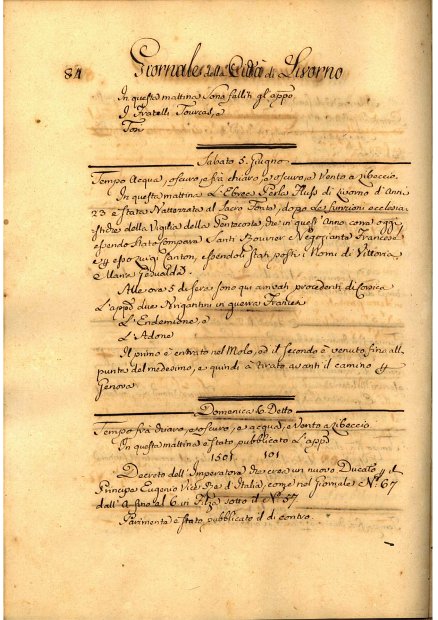 84 Giornale della Città di Livorno
In questa mattina sono falliti gl'appo
I Fratelli Tourcas, e
Tori
Sabato 5. Giugno
Tempo Acqua, oscuro, e frà chiaro, e oscuro, e Vento a Libeccio.
In questa mattina L'Ebrea Perla di Livorno d'Anni
23 è stata Battezzata al Sacro Fonte, dopo le funzioni ecclesia
stiche della Vigilia della Pentecoste, che in quest'Anno cade oggi,
essendo stato compare Santi Negoziante Francese
e esso Luigi Canton, essendoli stati posti i Nomi di Vittoria
Maria
Alle ore 5 di sera sono qui arrivati procedenti di Corsica
L'appo due Brigantini in guerra Francesi
L'Endemione, e
L'Adone
Il primo è entrato nel Molo, ed il secondo è venuto fino alla
punta del medesimo, e quindi à tirato avanti il camino
Genova.
Domenica 6. Detto
Tempo frà chiaro, e oscuro, e acqua, e Vento a Libeccio
In questa mattina è stato pubblicato L'appo
101
Decreto dell'Imperatore che crea un nuovo Ducato il
Principe Eugenio Vice Re d'Italia, come nel Giornale No. 67
dall'A fino al 6 in Filza sotto il No. 57
Parimente è stato pubblicato il di contro.